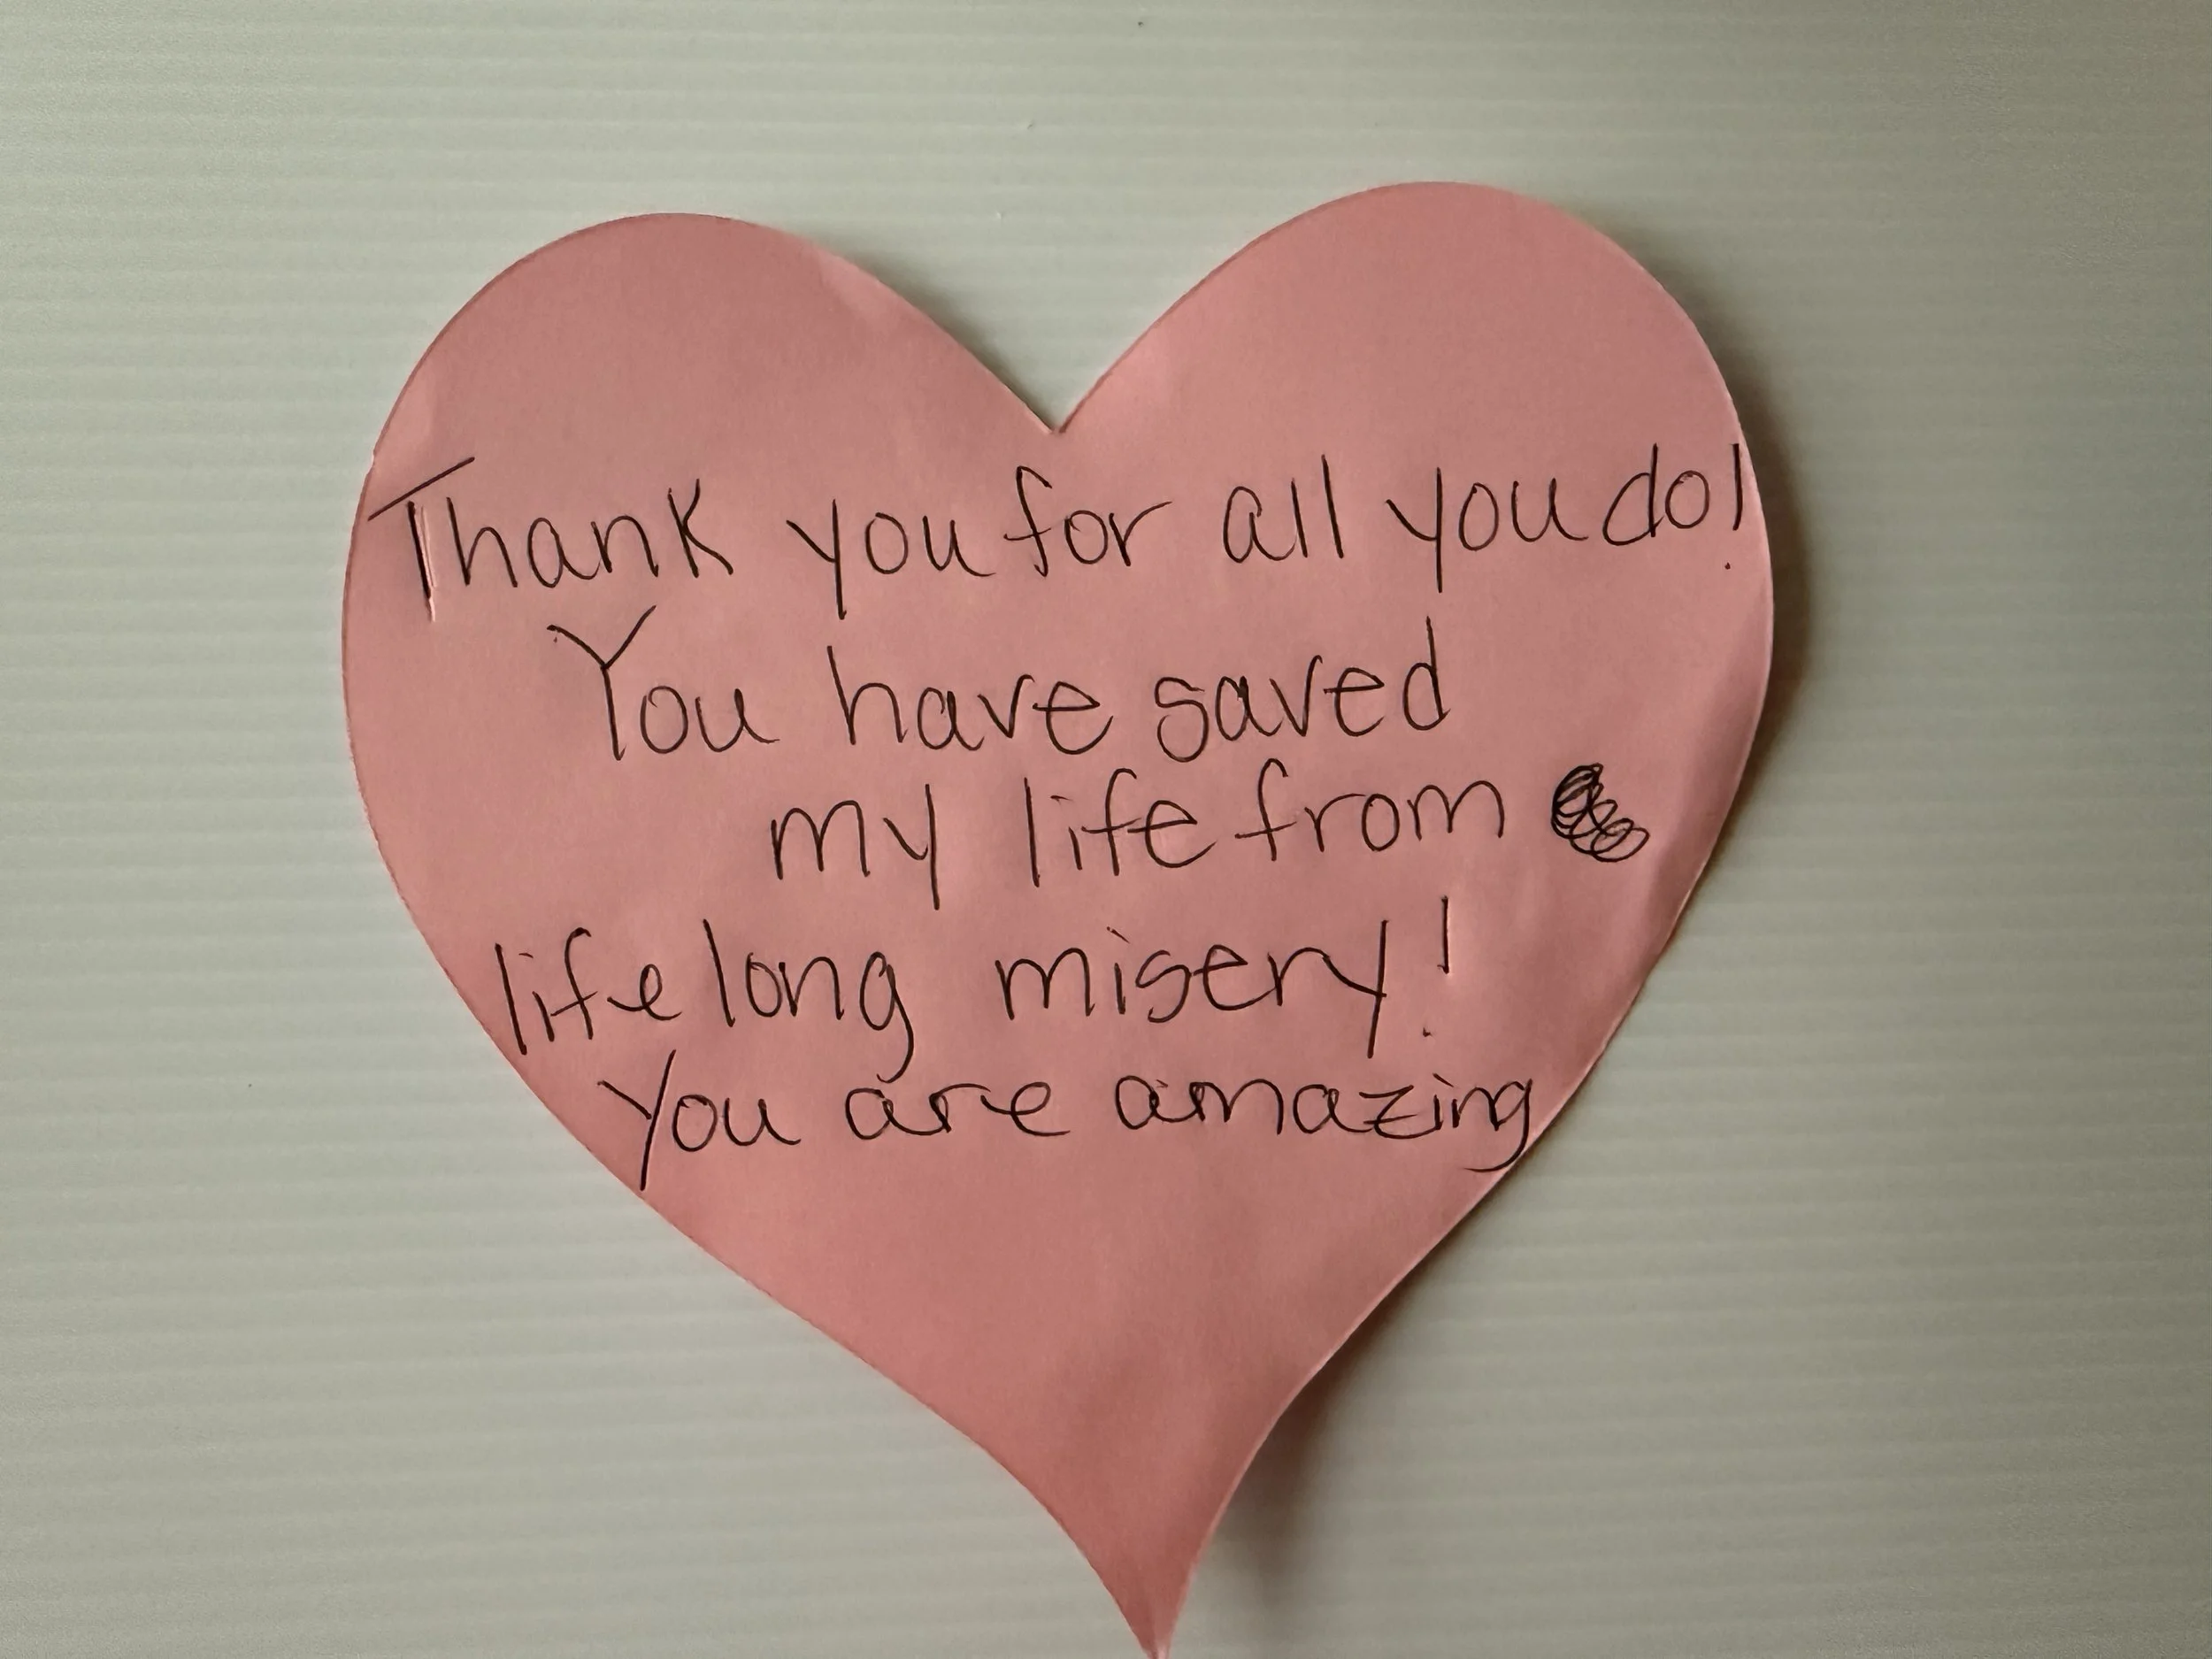 Thank you for all you do!
You have saved
my life from
life long misery!
You are amazing